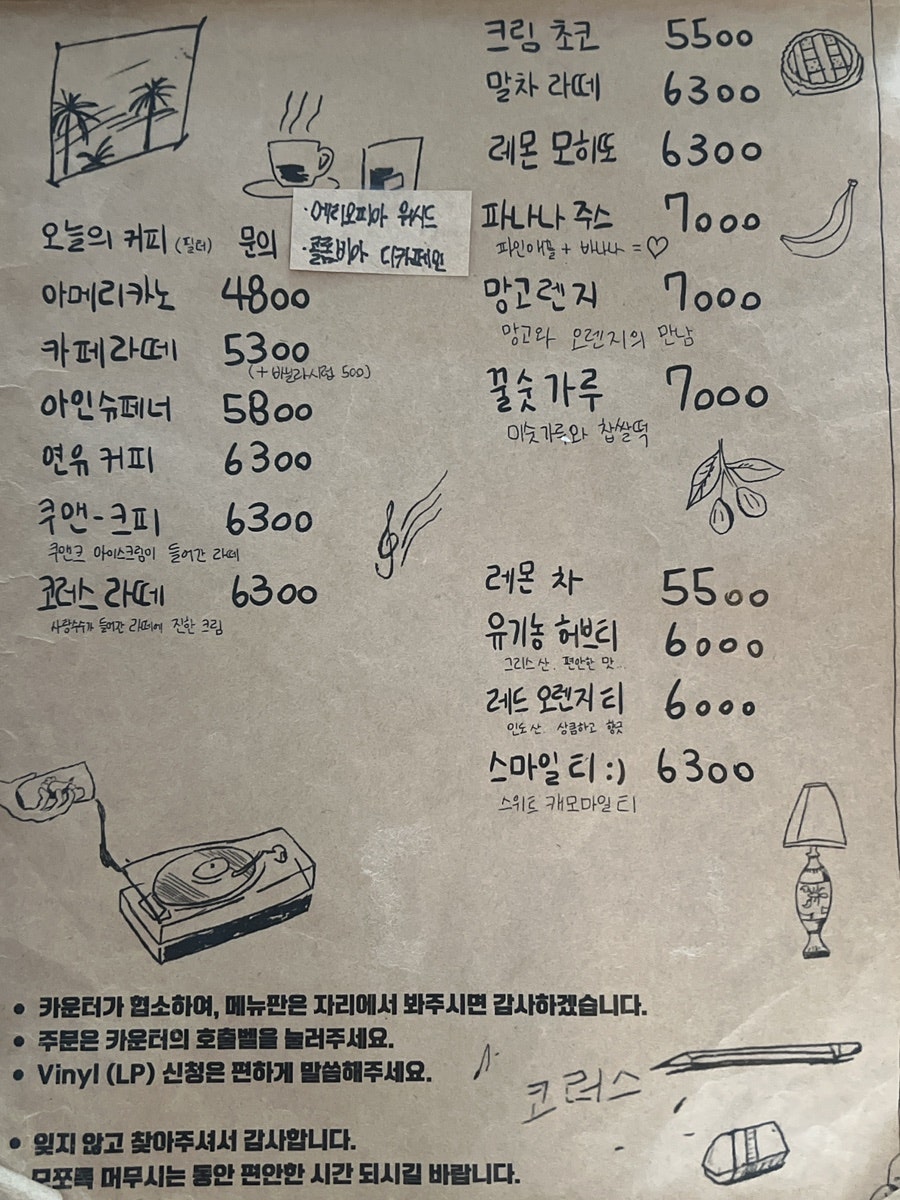 오늘의 커피 (필터) 문의
·에티오피아 워시드
·콜롬비아 디카페인
아메리카노 4800
카페라떼 5300
(+바닐라시럽 500)
아인슈페너 5800
연유 커피 6300
쿠앤-크피 6300
쿠앤크 아이스크림이 들어간 라떼
코러스 라떼 6300
사탕수수가 들어간 라떼에 진한 크림
크림 초코 5500
말차 라떼 6300
레몬 모히또 6300
파나나 주스 7000
파인애플 + 바나나 = ♡
망고렌지 7000
망고와 오렌지의 만남
꿀숫가루 7000
미숫가루와 찹쌀떡
레몬 차 5500
유기농 허브티 6000
그리스산. 편안한 맛..
레드 오렌지 티 6000
인도산. 상큼하고 향긋
스마일 티 :) 6300
스위트 캐모마일 티
• 카운터가 협소하여, 메뉴판은 자리에서 봐주시면 감사하겠습니다.
• 주문은 카운터의 호출벨을 눌러주세요.
• Vinyl (LP) 신청은 편하게 말씀해주세요.
코러스
• 잊지 않고 찾아주셔서 감사합니다.
모쪼록 머무시는 동안 편안한 시간 되시길 바랍니다.